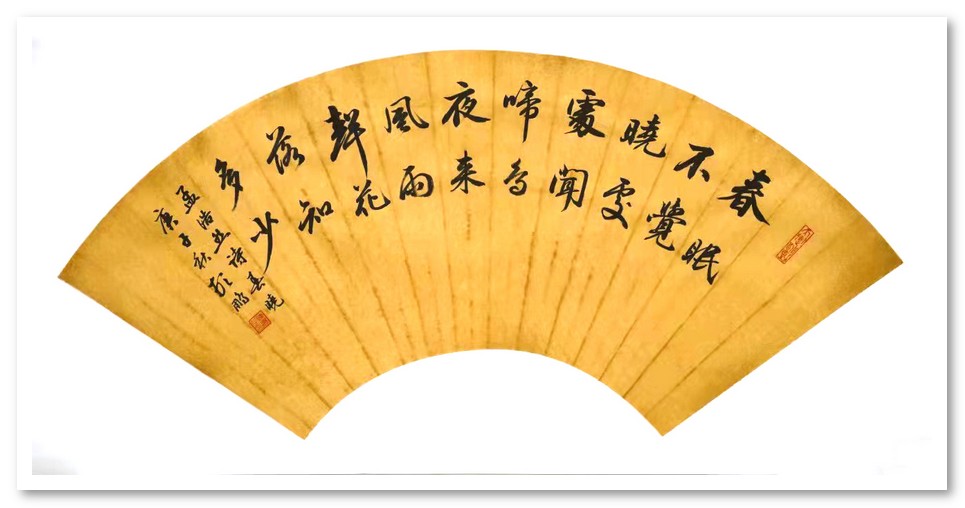 春眠
不覺
曉處
處聞
啼鳥
夜来
風雨
聲花
落知
多少
孟浩然詩春曉
庚子秋鵬